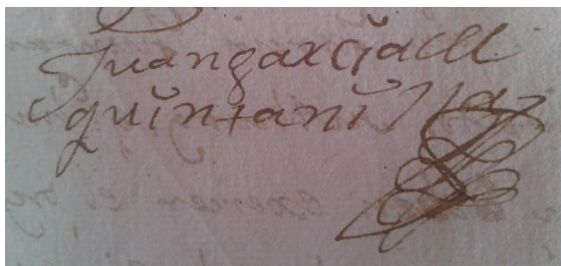 Juan garcia de
quintanilla